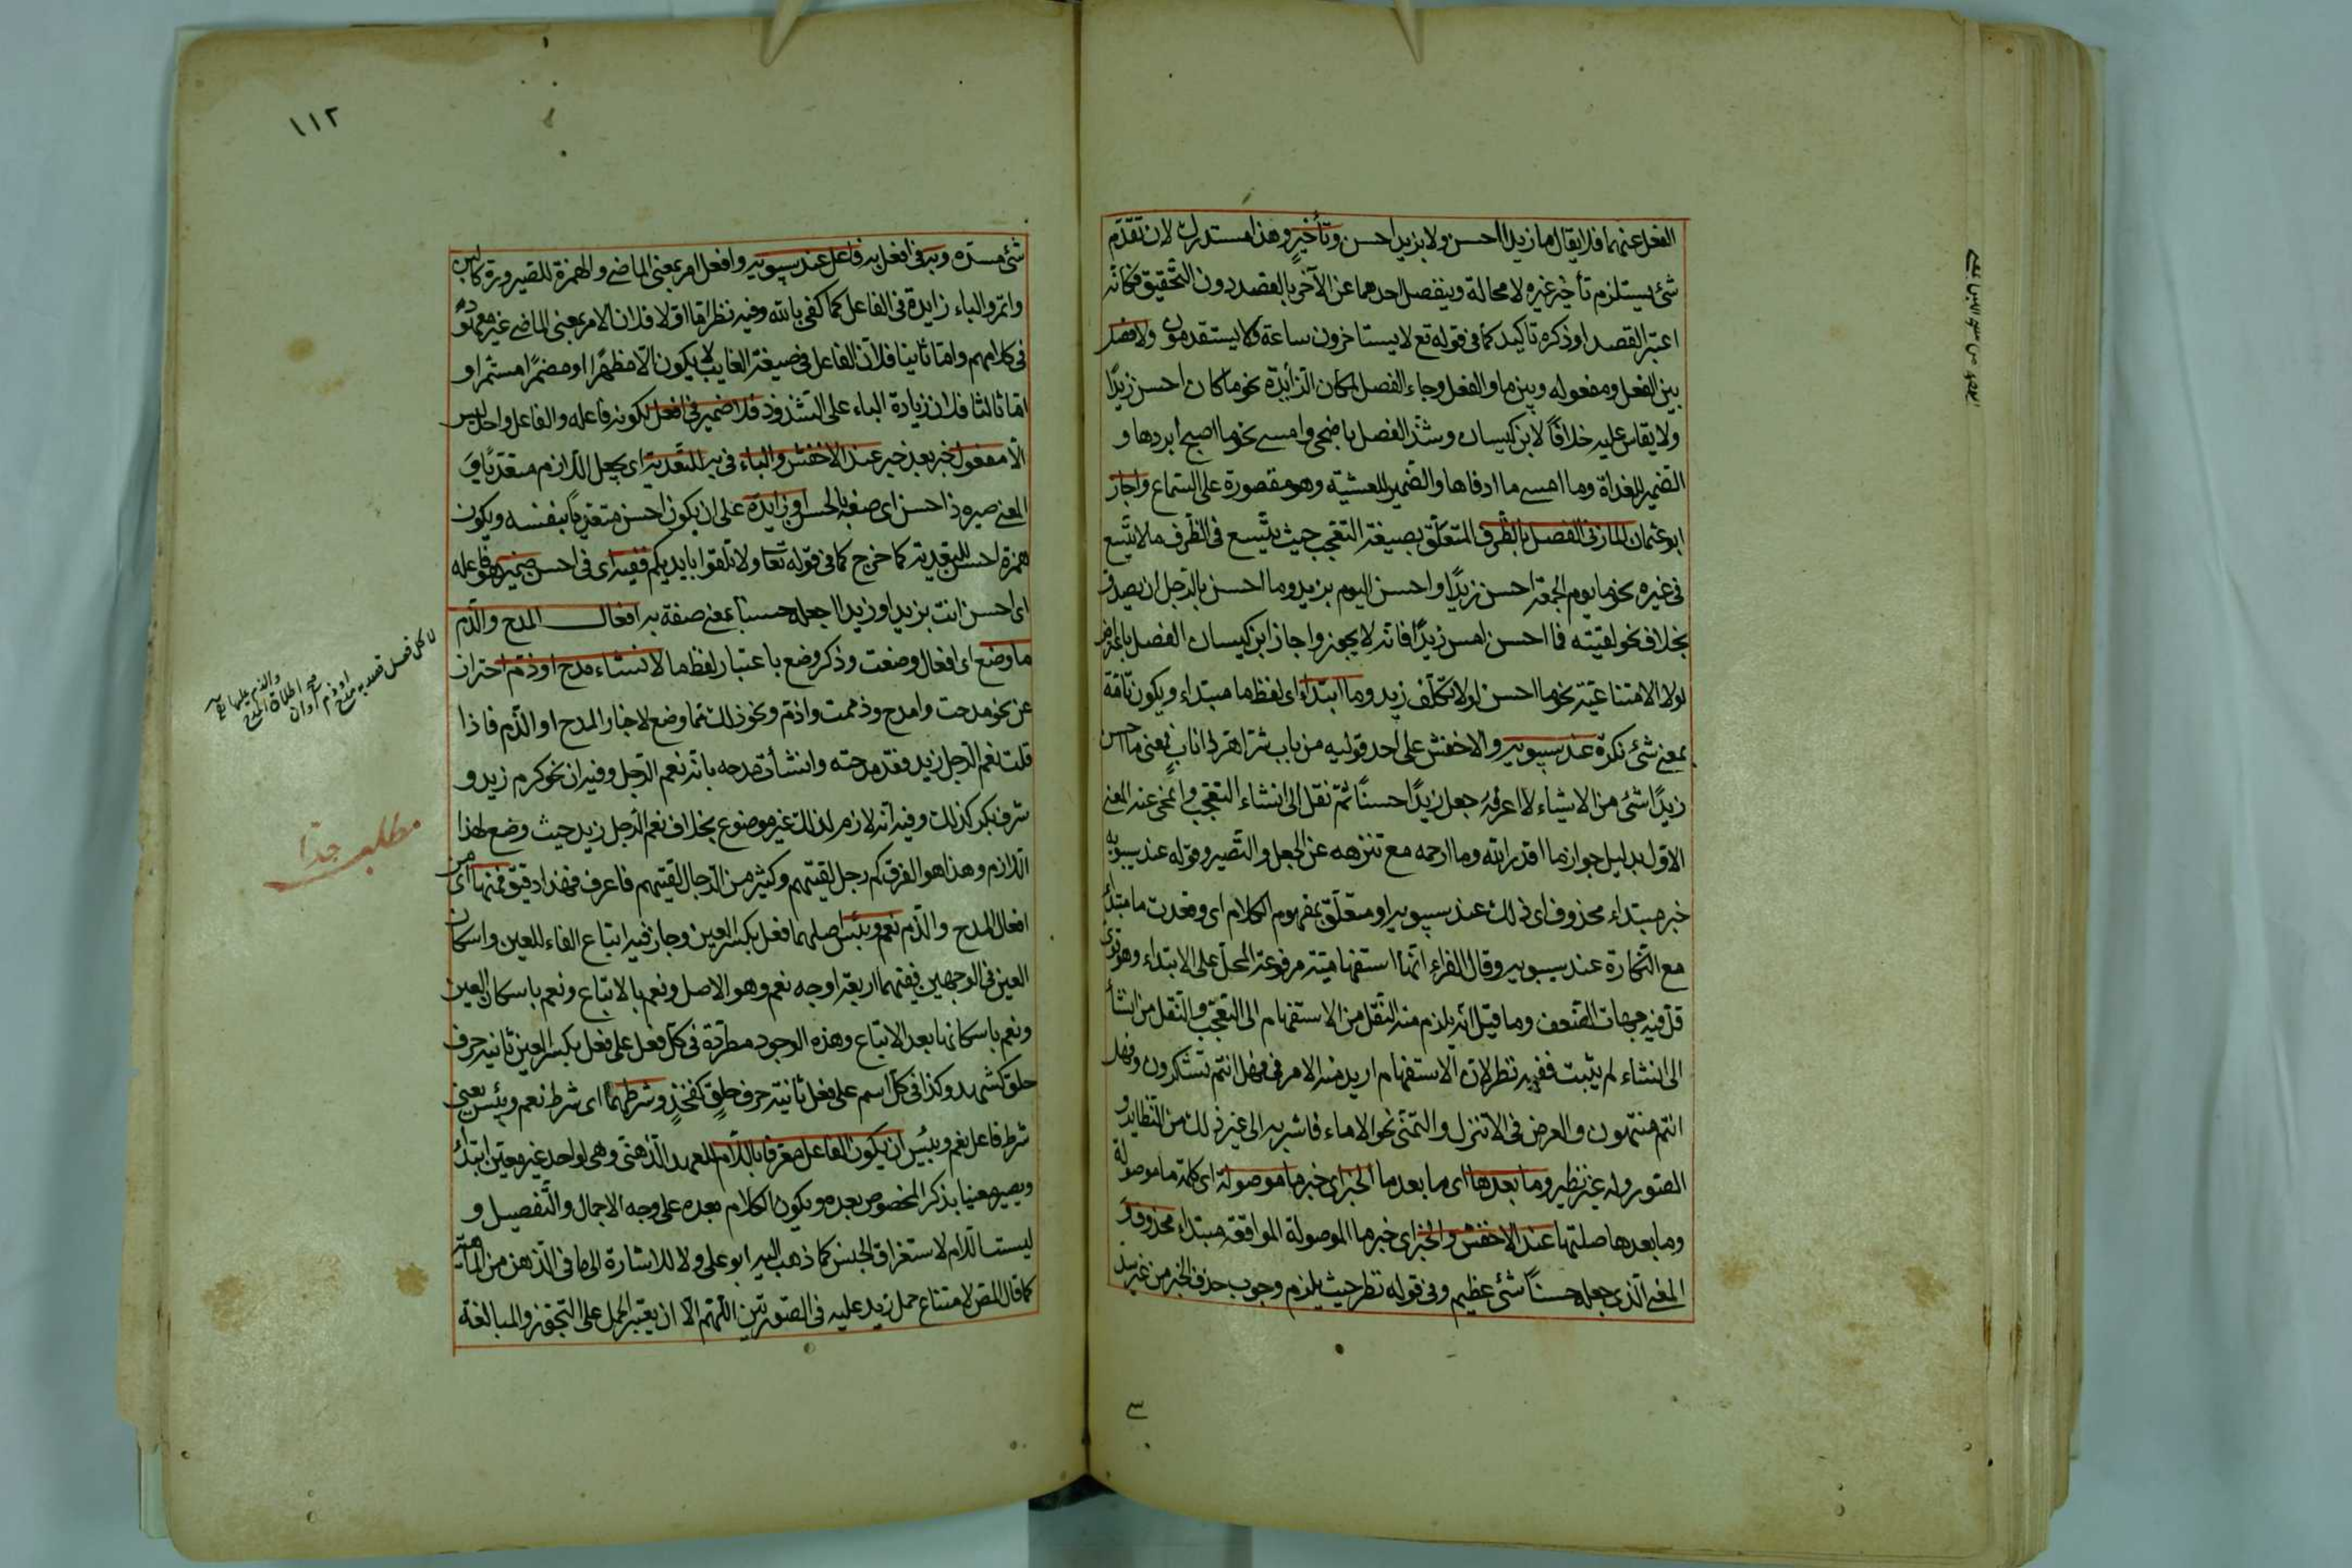 الفعل عنهما فلا يقال ما زيدا احسن ولا بزيد احسن وتأخير وهذا مستدرك لان تقدّم
شئ يستلزم تأخير غيره لا محالة وينفصل احدهما عن الآخر بالقصد دون التحقيق فكانّه
اعتبر القصد او ذكره تاكيدا كما فى قوله تع لا يستاخرون ساعة ولا يستقدمون ولا فصل
بين الفعل ومفعوله وبين ما والفعل وجاء الفصل بكان الزّائدة نحو ما كان احسن زيدًا
ولا يقاس عليه خلافًا لابن كيسان وشذّ الفصل باضحى وامسى نحو ما اصبح ابردها و
الضمير للغداة وما امسى ما ادفاها والضمير للعشيّة وهو مقصورة على السّماع واجاز
ابو عثمان المازنى الفصل بالظّرف المتعلّق بصيغة التعجّب حيث يتّسع فى الظّرف ما لا يتّسع
فى غيره نحو ما يوم الجمعة احسن زيدًا واحسن اليوم بزيد وما احسن بالرّجل ان يصدق
بخلاف نحو لقيته فما احسن امس زيدًا فانّه لا يجوز واجاز ابن كيسان الفصل
لولا الامتناعيّة نحو ما احسن لولا تكلّف زيد وما ابتداء اى لفظ ما مبتداء ويكون تامّة
بمعنى شئ نكرة عند سيبويه والاخفش على احد قوليه من باب شرّ اهرّ ذا ناب فمعنى ما احسن
زيدًا شئ من الاشياء لا اعرفه جعل زيدًا حسنًا ثمّ نقل الى انشاء التعجّب وانمحى عنه المعنى
الاوّل بدليل جواز ما اقدر الله وما ارحمه مع تنزهه عن الجعل والتّصيير وقوله عند سيبويه
خبر مبتداء محذوف اى ذلك عند سيبويه او متعلّق بمفهوم الكلام اى وقعت ما مبتدأ
مع النّكارة عند سيبويه وقال الفراء انّها استفهاميّة مرفوعة المحلّ على الابتداء وهو قوىّ
قلّ فيه جهات الضّعف وما قيل انّه يلزم منه النّقل من الاستفهام الى التعجّب والنّقل من انشأ
الى انشاء لم يثبت ففيه نظر لانّ الاستفهام اريد منه الامر فى فهل انتم تشكرون وفهل
انتم منتهون والعرض فى الا تنزل والتّمنّى نحو الا ماء فاشربه الى غير ذلك من النّظاير و
الصّور وله غير نظير وما بعدها اى ما بعد ما الخبر اى خبر ما موصولة اى كلمة ما موصولة
وما بعدها صلتها عند الاخفش والخبر اى خبر ما الموصولة الواقعة مبتداء محذوف
المعنى الّذى جعله حسنًا شئ عظيم وفى قوله نظر حيث يلزم وجوب حذف الخبر من غير سدّ
١١٢
شئ مسدّه وبه فى افعل به فاعل عند سيبويه وافعل امر بمعنى الماضى والهمزة للصيرورة كالبن
واتمر والباء زايدة فى الفاعل كما كفى بالله وفيه نظر امّا اوّلا فلان الامر بمعنى الماضى غير معهود
فى كلامهم وامّا ثانيا فلانّ الفاعل فى صيغة الغايب لا يكون الّا مظهرًا او مضمرًا مستترا و
امّا ثالثا فلان زيادة الباء على الشذوذ فلا ضمير فى افعل لكونه فاعله والفاعل واحد ليس
الّا مفعول خبر بعد خبر عند الاخفش والباء فى به للتّعدية اى يجعل اللّازم متعدّيًا و
المعنى صيره ذا حسن اى صفه بالحسن او زايدة على ان يكون احسن متعدّيًا بنفسه ويكون
همزة احسن للتعدية كما خرج كما فى قوله تعا ولا تلقوا بايديكم ففيه اى فى احسن ضمير هو فاعله
اى احسن انت بزيد او زيدا اجعله حسنا بمعنى صفة به افعال المدح والذّم
ما وضع اى افعال وضعت وذكر وضع باعتبار لفظ ما لانشاء مدح او ذمّ احتراز
عن نحو مدحت وامدح وذممت واذمّ ونحو ذلك ممّا وضع لاخبار المدح او الذّم فاذا
قلت نعم الرّجل زيد فقد مدحته وانشأت مدحه بانّه نعم الرّجل وفيه ان نحو كرم زيد و
شرف بكر كذلك وفيه انّه لازم لذلك غير موضوع بخلاف نعم الرّجل زيد حيث وضع لهذا
اللّازم وهذا هو الفرق كم رجل لقيتهم وكثير من الرّجال لقيتهم فاعرف فهذا دقيق فمنها اى من
افعال المدح والذّم نعم وبئس اصلهما فعل بكسر العين وجاز فيه اتباع الفاء للعين واسكان
العين فى الوجهين ففيهما اربعة اوجه نعم وهو الاصل ونعم بالاتباع ونعم باسكان العين
ونعم باسكانها بعد الاتباع وهذه الوجوه مطّردة فى كلّ فعل على فعل بكسر العين ثانيه حرف
حلق كشهد وكذا فى كلّ اسم على فعل ثانيه حرف حلق كفخذ وشرطهما اى شرط نعم وبئس يعنى
شرط فاعل نعم وبئس ان يكون الفاعل معرّفا باللّام للعهد الذّهنى وهى لواحد غير معيّن ابتدأ
ويصير معيّنا بذكر المخصوص بعده ويكون الكلام بعده على وجه الاجمال والتّفصيل و
ليست اللّام لاستغراق الجنس كما ذهب اليه ابو على ولا للاشارة الى ما فى الذّهن من الماهيّة
كما قال المص لامتناع حمل زيد عليه فى الصّورتين اللّهمّ الّا ان يعتبر الحمل على التجوّز والمبالغة
لا كل فعل قصد به مدح
او ذم
مطلب جدّا